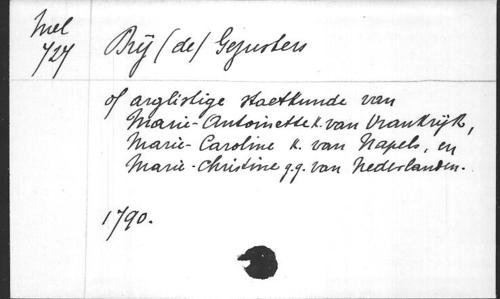 Mel
727
Brij (de) Gezusters
of arglistige staatkunde van
Marie-Antoinette k. van Vrankrijk,
Marie-Caroline k. van Napels, en
Marie-Christine g.g. van Nederlanden.
1790.